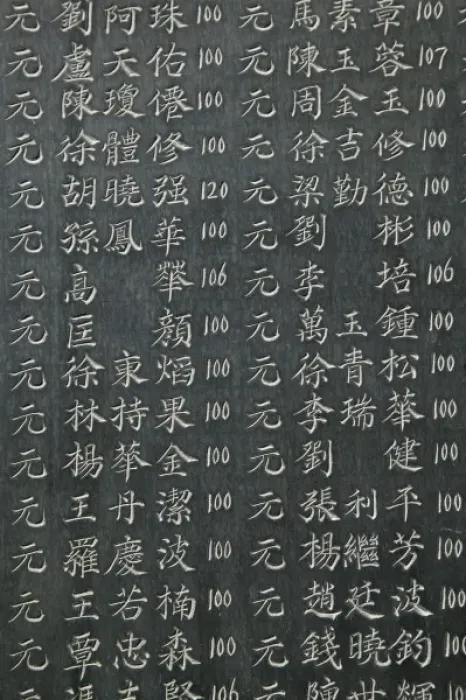 元 劉阿珠 100 元 馬素章 100
元 盧天佑 100 元 陳玉蓉 107
元 陳瓊僊 100 元 周金玉 100
元 徐體修 100 元 徐吉修 100
元 胡曉强 120 元 梁勤德 100
元 孫鳳華 100 元 劉彬 100
元 高華 106 元 李培 106
元 匡顏 100 元 萬玉鍾 100
元 徐東焰 100 元 徐青松 100
元 林持果 100 元 李瑞華 100
元 楊華金 100 元 劉健 100
元 王丹潔 100 元 張利平 100
元 羅慶波 100 元 楊繼芳 100
元 王若楠 100 元 趙廷波 100
元 覃忠森 100 元 錢曉鈞 100
元 馮志賢 106 元 陳世輝